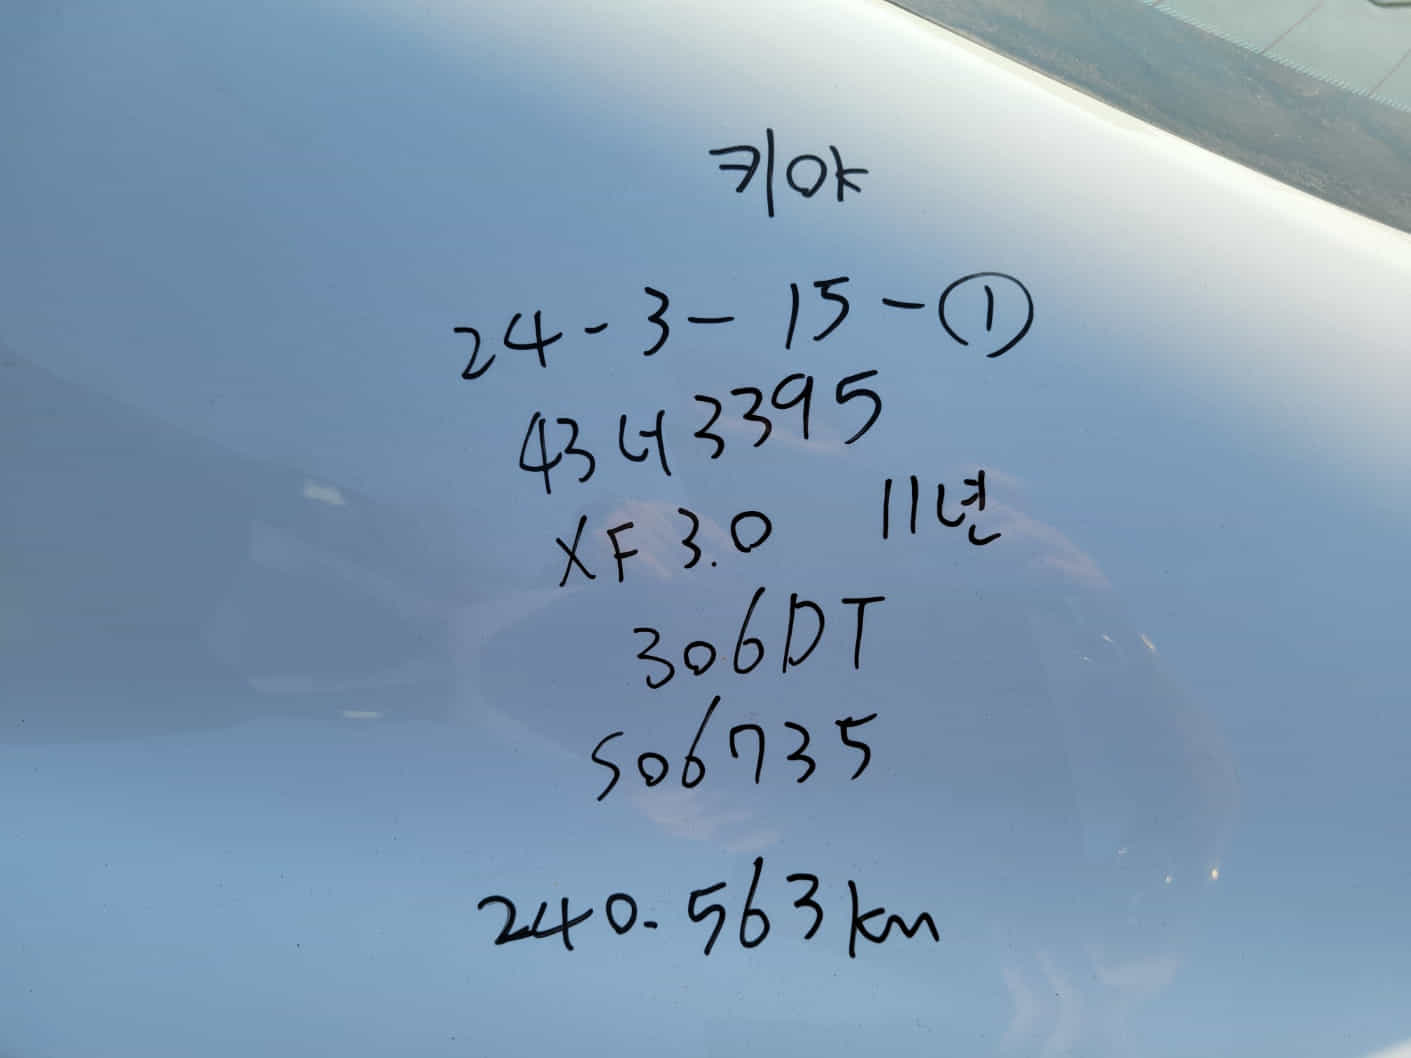 키야
24-3-15-①
43너3395
XF 3.0 11년
306DT
S06735
240.563km